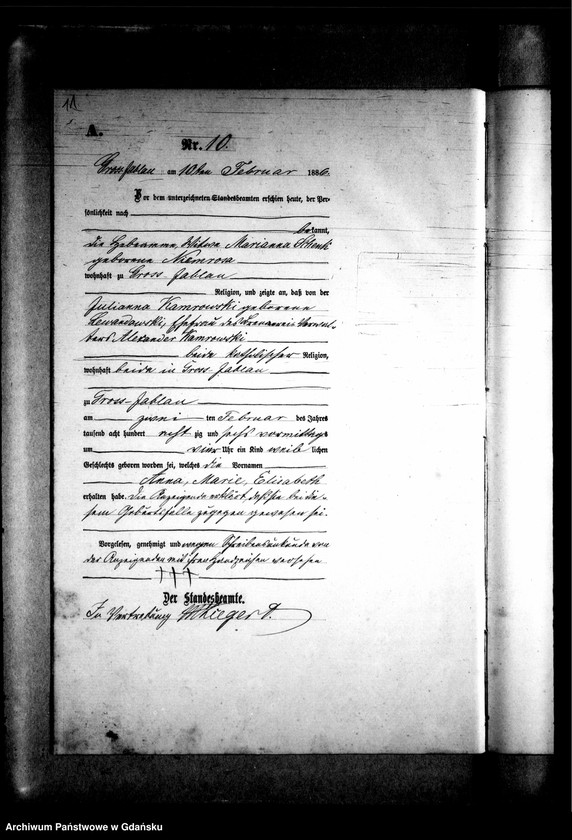 11
A.
Nr. 10.
Gross Jablau am 10ten Februar 1886.
Vor dem unterzeichneten Standesbeamten erschien heute, der Per-
sönlichkeit nach
bekannt,
die Hebeamme, Wittwe Marianna
geborene
wohnhaft zu Gross Jablau
Religion, und zeigte an, daß von der
Julianna Kamrowski geborene
Lewandowski, Ehefrau des Brennerei Verwal-
ters Alexander Kamrowski
beide katholischer Religion,
wohnhaft beide in Gross Jablau
zu Gross-Jablau
am zwei ten Februar des Jahres
tausend acht hundert acht zig und sechs vormittags
um vier Uhr ein Kind weib lichen
Geschlechts geboren worden sei, welches die Vornamen
Anna, Marie, Elisabeth
erhalten habe. Die Anzeigende erklärt, daß sie bei die-
sem Geburtsfalle zugegen gewesen sei.
Vorgelesen, genehmigt und wegen Schreibensunkunde von
der Anzeigenden mit ihren Handzeichen versehen
+++
Der Standesbeamte.
In Vertretung
Archiwum Państwowe w Gdańsku